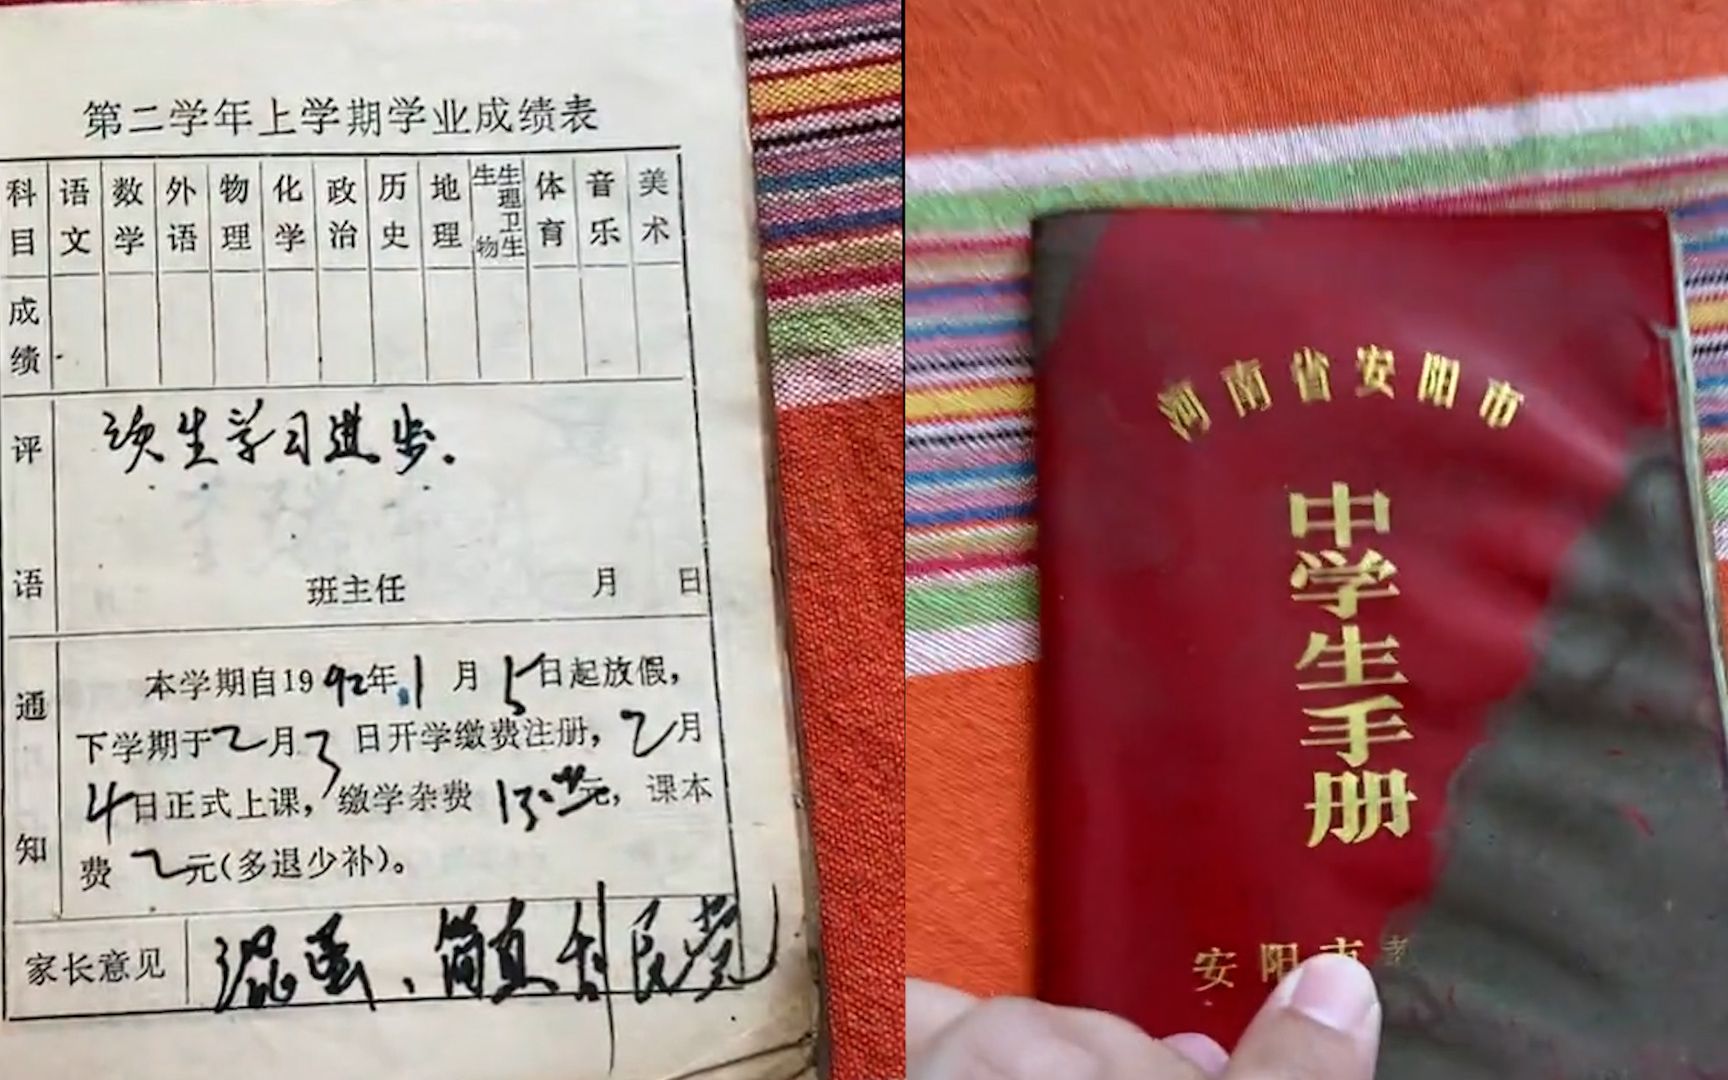 第二学年上学期学业成绩表
科目 语文 数学 外语 物理 化学 政治 历史 地理 生物 生理卫生 体育 音乐 美术
成绩
评语
该生学习进步.
班主任 月 日
通知
本学期自1992年1月5日起放假,
下学期于2月3日开学缴费注册, 2月
4日正式上课, 缴学杂费 13.00元, 课本
费 2元(多退少补)。
家长意见 混蛋、简直
河南省安阳市
中学生手册
安阳市教